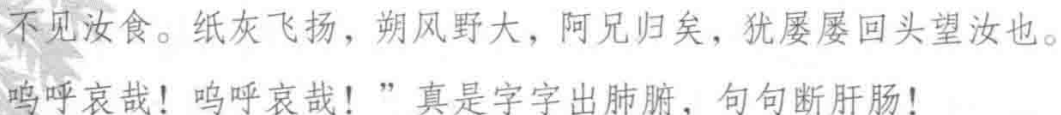 不见汝食。纸灰飞扬，朔风野大，阿兄归矣，犹屡屡回头望汝也。
呜呼哀哉！呜呼哀哉！”真是字字出肺腑，句句断肝肠！